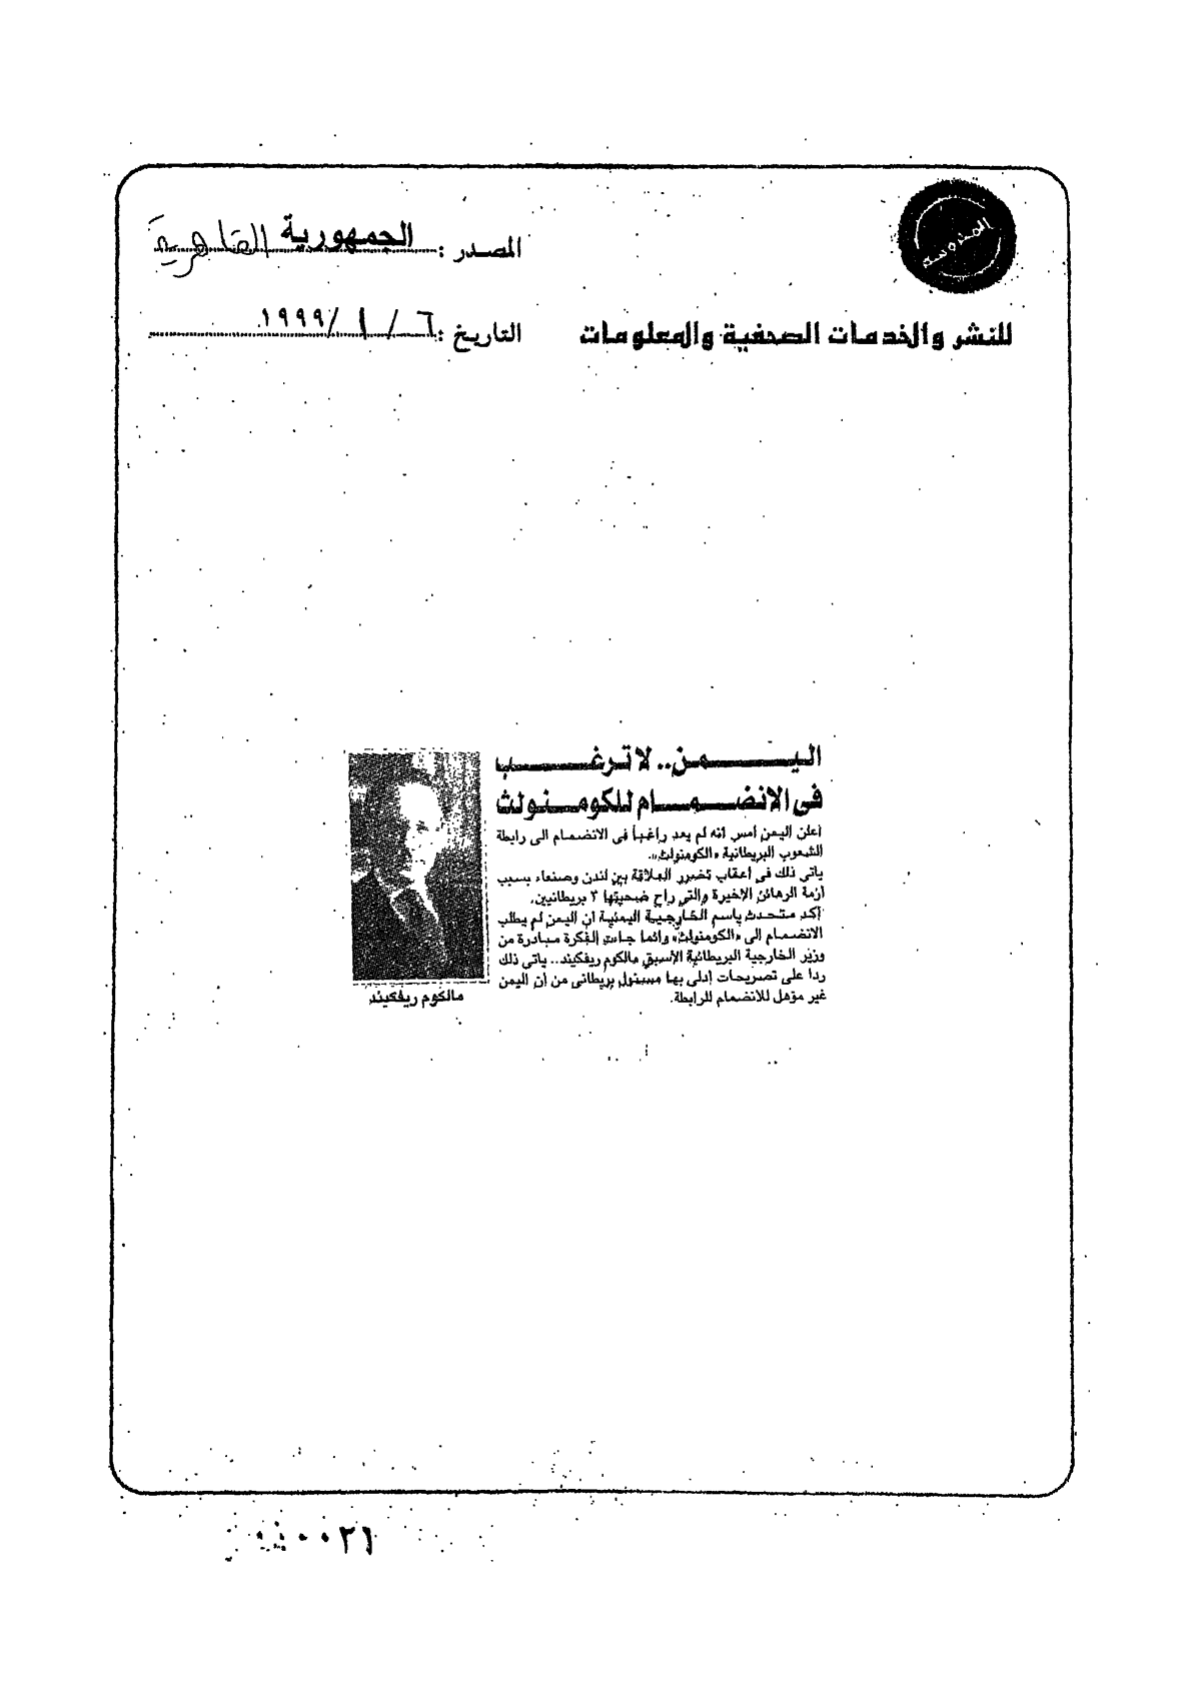 المحروسة
المصدر : الجمهورية القاهرية
للنشر والخدمات الصحفية والمعلومات
التاريخ : ٦ / ١ / ١٩٩٩
اليمن.. لا ترغب
فى الانضمام للكومنولث
أعلن اليمن أمس أنه لم يعد راغباً فى الانضمام الى رابطة
الشعوب البريطانية «الكومنولث».
يأتى ذلك فى أعقاب تضرر العلاقة بين لندن وصنعاء بسبب
أزمة الرهائن الإخيرة والتى راح ضحيتها ٣ بريطانيين.
أكد متحدث باسم الخارجية اليمنية ان اليمن لم يطلب
الانضمام إلى «الكومنولث» وانما جاءت الفكرة مبادرة من
وزير الخارجية البريطانية الأسبق مالكوم ريفكيند.. يأتى ذلك
ردا على تصريحات إدلى بها مسئول بريطانى من أن اليمن
غير مؤهل للانضمام للرابطة.
مالكوم ريفكيند